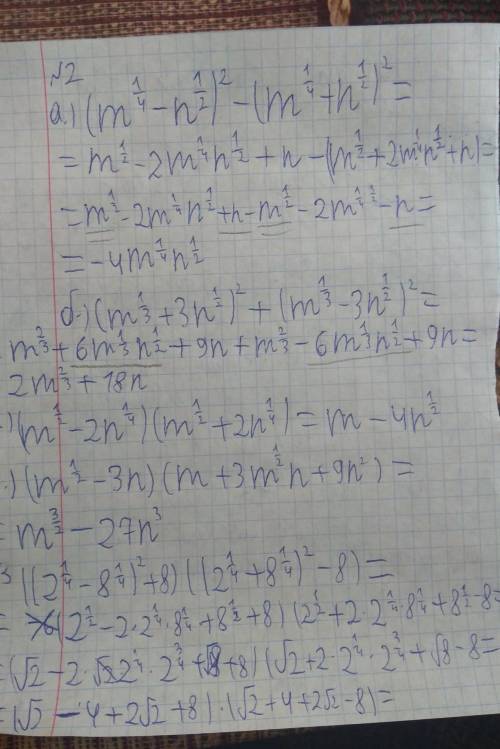 №2
а.) (m^{1/4} - n^{1/2})^2 - (m^{1/4} + n^{1/2})^2 =
= m^{1/2} - 2m^{1/4}n^{1/2} + n - (m^{1/2} + 2m^{1/4}n^{1/2} + n) =
= m^{1/2} - 2m^{1/4}n^{1/2} + n - m^{1/2} - 2m^{1/4} ^{1/2} - n =
= -4m^{1/4}n^{1/2}
б.) (m^{1/3} + 3n^{1/2})^2 + (m^{1/3} - 3n^{1/2})^2 =
m^{2/3} + 6m^{1/3}n^{1/2} + 9n + m^{2/3} - 6m^{1/3}n^{1/2} + 9n =
2m^{2/3} + 18n
.) (m^{1/2} - 2n^{1/4})(m^{1/2} + 2n^{1/4}) = m - 4n^{1/2}
.) (m^{1/2} - 3n)(m + 3m^{1/2}n + 9n^2) =
= m^{3/2} - 27n^3
3 ((2^{1/4} - 8^{1/4})^2 + 8)((2^{1/4} + 8^{1/4})^2 - 8) =
= (2^{1/2} - 2·2^{1/4}·8^{1/4} + 8^{1/2} + 8)(2^{1/2} + 2·2^{1/4}·8^{1/4} + 8^{1/2} - 8 =
= (√2 - 2·2^{1/4}·2^{3/4} + √8 + 8)(√2 + 2·2^{1/4}·2^{3/4} + √8 - 8 =
= (√2 - 4 + 2√2 + 8)·(√2 + 4 + 2√2 - 8) =